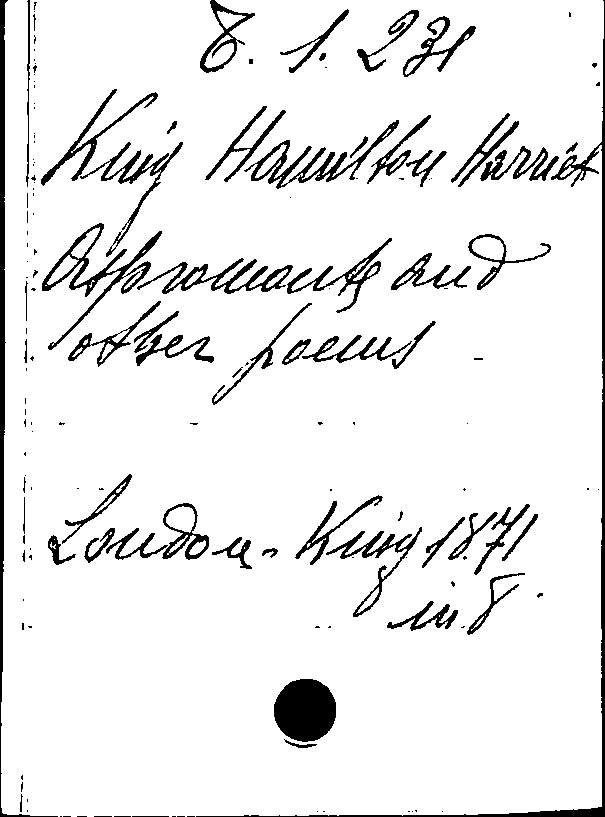 8. 1. 231
King Hamilton Harriet
Aspromonte and
other poems
London - King 1871
in 8.